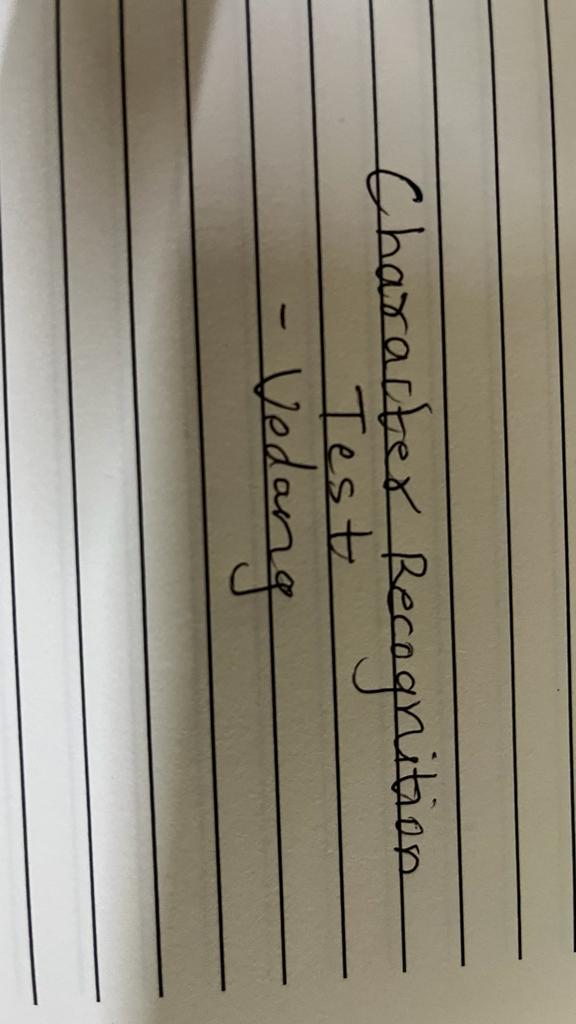 Character Recognition
Test
- Vedang